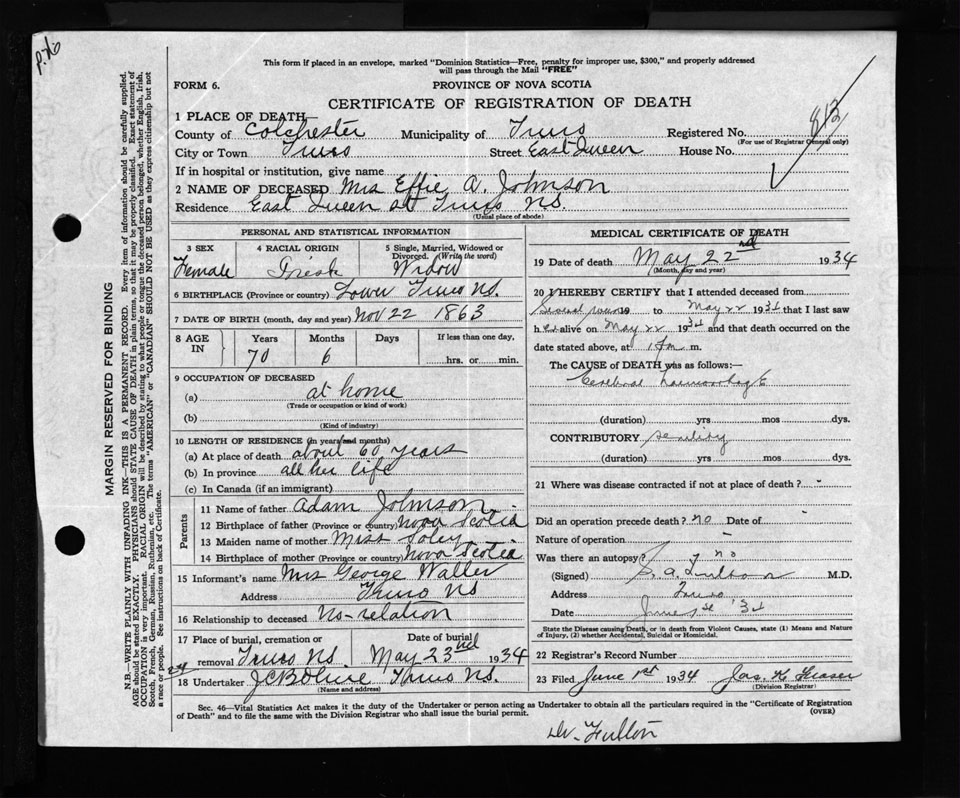 p.76
This form if placed in an envelope, marked "Dominion Statistics—Free, penalty for improper use, $300," and properly addressed
will pass through the Mail "FREE"
FORM 6.
PROVINCE OF NOVA SCOTIA
CERTIFICATE OF REGISTRATION OF DEATH
813
1 PLACE OF DEATH—
County of Colchester Municipality of Truro Registered No.
(For use of Registrar General only)
City or Town Truro Street East Queen House No.
If in hospital or institution, give name
2 NAME OF DECEASED Mrs Effie A. Johnson
Residence East Queen st Truro NS.
(Usual place of abode)
PERSONAL AND STATISTICAL INFORMATION
3 SEX Female
4 RACIAL ORIGIN Irish
5 Single, Married, Widowed or Divorced. (Write the word) Widow
6 BIRTHPLACE (Province or country) Lower Truro NS.
7 DATE OF BIRTH (month, day and year) Nov 22 1863
8 AGE IN
Years 70
Months 6
Days
If less than one day,
hrs. or min.
9 OCCUPATION OF DECEASED
(a) at home
(Trade or occupation or kind of work)
(b)
(Kind of industry)
10 LENGTH OF RESIDENCE (in years and months)
(a) At place of death about 60 years
(b) In province all her life
(c) In Canada (if an immigrant)
Parents
11 Name of father Adam Johnson
12 Birthplace of father (Province or country) Nova Scotia
13 Maiden name of mother Miss
14 Birthplace of mother (Province or country) Nova Scotia
15 Informant's name Mrs George Waller
Address Truro NS
16 Relationship to deceased no-relation
17 Place of burial, cremation or removal Truro NS.
Date of burial May 23rd 1934
18 Undertaker Truro NS.
(Name and address)
MEDICAL CERTIFICATE OF DEATH
19 Date of death May 22nd 1934
(Month, day and year)
20 I HEREBY CERTIFY that I attended deceased from
Several 19 to May 22 1934 that I last saw
her alive on May 22 1934 and that death occurred on the
date stated above, at 1 pm m.
The CAUSE of DEATH was as follows:—
Cerebral haemorrhage
(duration) yrs mos dys.
CONTRIBUTORY senility
(duration) yrs. mos dys.
21 Where was disease contracted if not at place of death?
Did an operation precede death? no Date of
Nature of operation
Was there an autopsy? no
(Signed) Fulton M.D.
Address Truro
Date June 1st '34
State the Disease causing Death, or in death from Violent Causes, state (1) Means and Nature
of Injury, (2) whether Accidental, Suicidal or Homicidal.
22 Registrar's Record Number
23 Filed June 1st 1934 Jas. K Fraser
(Division Registrar)
Sec. 46—Vital Statistics Act makes it the duty of the Undertaker or person acting as Undertaker to obtain all the particulars required in the "Certificate of Registration
of Death" and to file the same with the Division Registrar who shall issue the burial permit. (OVER)
Dr. Fulton
MARGIN RESERVED FOR BINDING
N.B.—WRITE PLAINLY WITH UNFADING INK—THIS IS A PERMANENT RECORD. Every item of information should be carefully supplied.
AGE should be stated EXACTLY. PHYSICIANS should STATE CAUSE OF DEATH in plain terms, so that it may be properly classified. Exact statement of
OCCUPATION is very important. RACIAL ORIGIN will be described by stating to what people or tongue the deceased person belonged, whether English, Irish,
Scotch, French, German, Russian, Ruthenian, etc. The terms "AMERICAN" or "CANADIAN" SHOULD NOT BE USED as they express citizenship but not
a race or people. See instructions on back of Certificate.